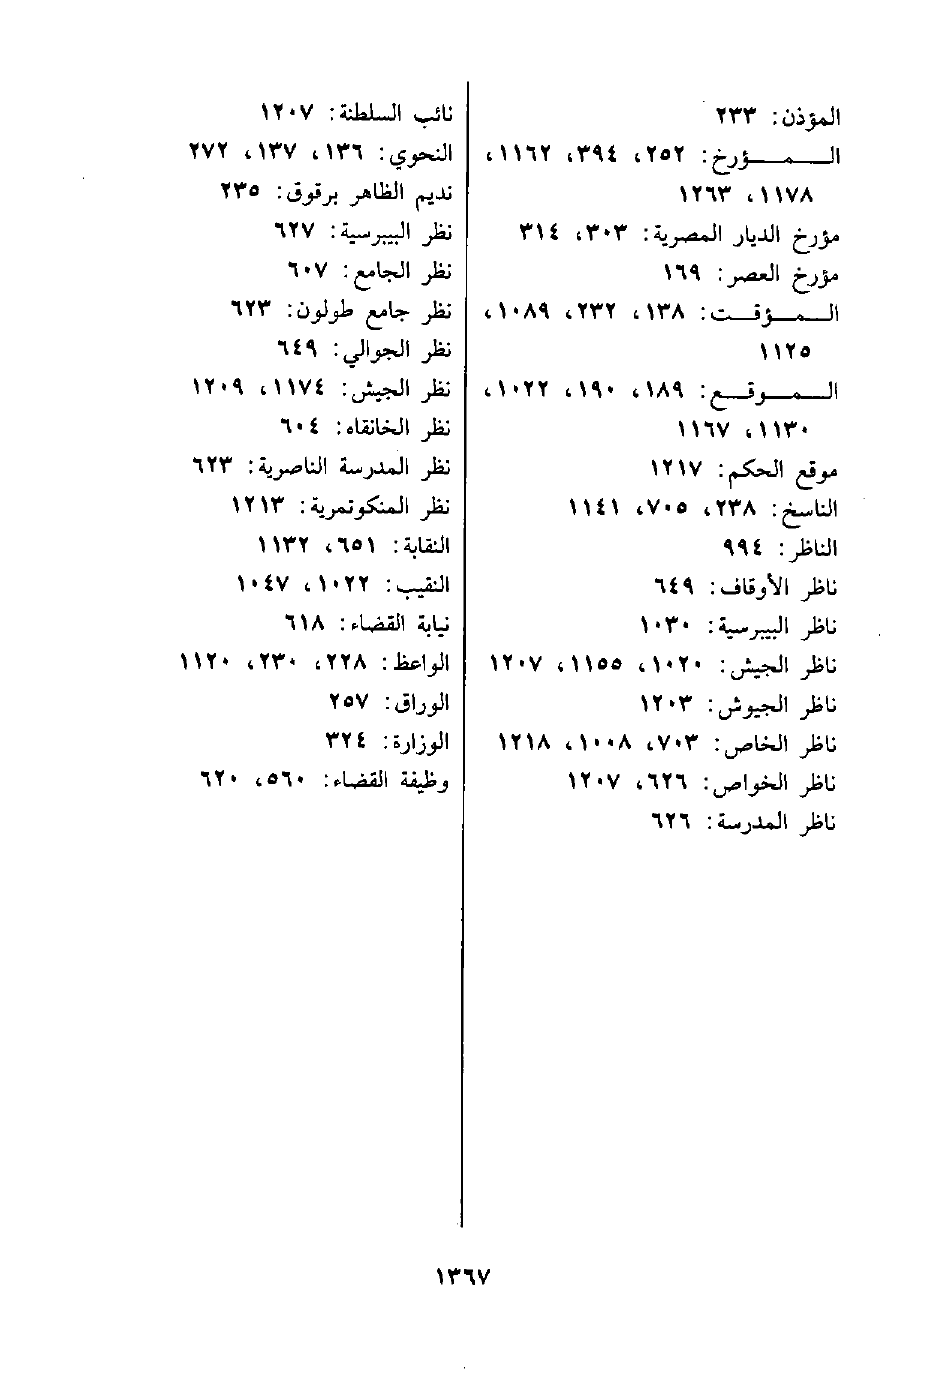 المؤذن: ٢٣٣
المؤرخ: ٢٥٢، ٣٩٤، ١١٦٢،
١١٧٨، ١٢٦٣
مؤرخ الديار المصرية: ٣٠٣، ٣١٤
مؤرخ العصر: ١٦٩
المؤقت: ١٣٨، ٢٣٢، ١٠٨٩،
١١٢٥
الموقع: ١٨٩، ١٩٠، ١٠٢٢،
١١٣٠، ١١٦٧
موقع الحكم: ١٢١٧
الناسخ: ٢٣٨، ٧٠٥، ١١٤١
الناظر: ٩٩٤
ناظر الأوقاف: ٦٤٩
ناظر البيبرسية: ١٠٣٠
ناظر الجيش: ١٠٢٠، ١١٥٥، ١٢٠٧
ناظر الجيوش: ١٢٠٣
ناظر الخاص: ٧٠٣، ١٠٠٨، ١٢١٨
ناظر الخواص: ٦٢٦، ١٢٠٧
ناظر المدرسة: ٦٢٦
نائب السلطنة: ١٢٠٧
النحوي: ١٣٦، ١٣٧، ٢٧٢
نديم الظاهر برقوق: ٢٣٥
نظر البيبرسية: ٦٢٧
نظر الجامع: ٦٠٧
نظر جامع طولون: ٦٢٣
نظر الجوالي: ٦٤٩
نظر الجيش: ١١٧٤، ١٢٠٩
نظر الخانقاه: ٦٠٤
نظر المدرسة الناصرية: ٦٢٣
نظر المنكوتمرية: ١٢١٣
النقابة: ٦٥١، ١١٣٢
النقيب: ١٠٢٢، ١٠٤٧
نيابة القضاء: ٦١٨
الواعظ: ٢٢٨، ٢٣٠، ١١٢٠
الوراق: ٢٥٧
الوزارة: ٣٢٤
وظيفة القضاء: ٥٦٠، ٦٢٠
١٣٦٧